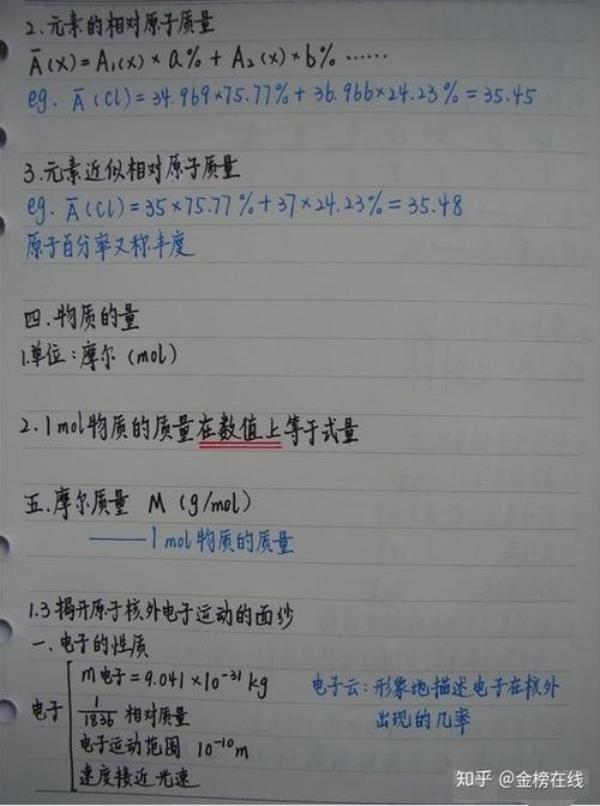 2.元素的相对原子质量
Ā(X)=A₁(X)×a%+A₂(X)×b%……
eg. Ā(Cl)=34.969×75.77%+36.966×24.23%=35.45
3.元素近似相对原子质量
eg. Ā(Cl)=35×75.77%+37×24.23%=35.48
原子百分率又称丰度
四.物质的量
1.单位:摩尔(mol)
2.1mol物质的质量在数值上等于式量
五.摩尔质量 M(g/mol)
——1mol物质的质量
1.3揭开原子核外电子运动的面纱
一.电子的性质
电子
m电子=9.041×10⁻³¹kg
1/1836 相对质量
电子运动范围 10⁻¹⁰m
速度接近光速
电子云:形象地描述电子在核外
出现的几率
知乎 @金榜在线